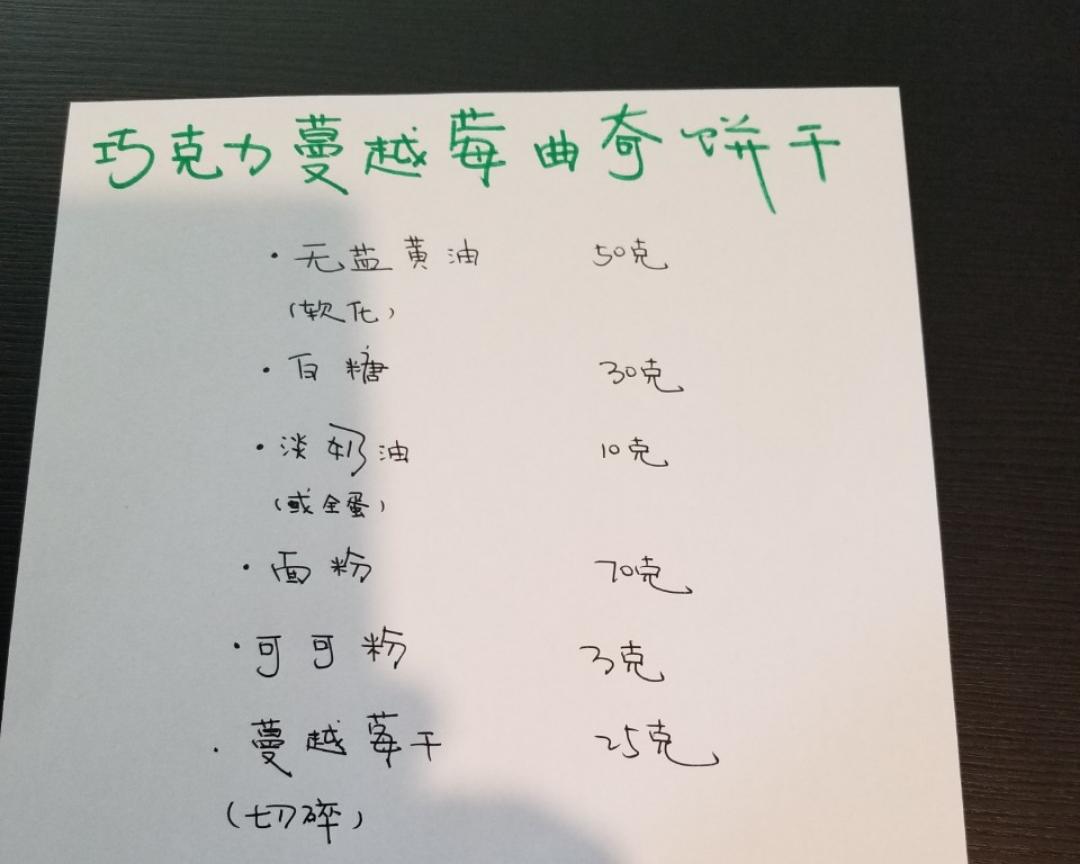 巧克力蔓越莓曲奇饼干
·无盐黄油 50克
(软化)
·白糖 30克
·淡奶油 10克
(或全蛋)
·面粉 70克
·可可粉 3克
·蔓越莓干 25克
(切碎)